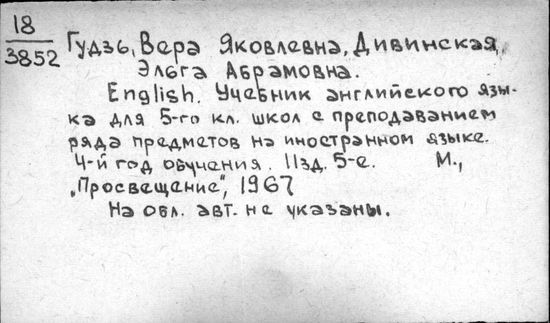 18
3852
Гудзь, Вера Яковлевна, Дивинская,
Эльга Абрамовна.
English. Учебник английского язы-
ка для 5-го кл. школ с преподаванием
ряда предметов на иностранном языке.
4-й год обучения. Изд. 5-е. М.,
„Просвещение", 1967
На обл. авт. не указаны.